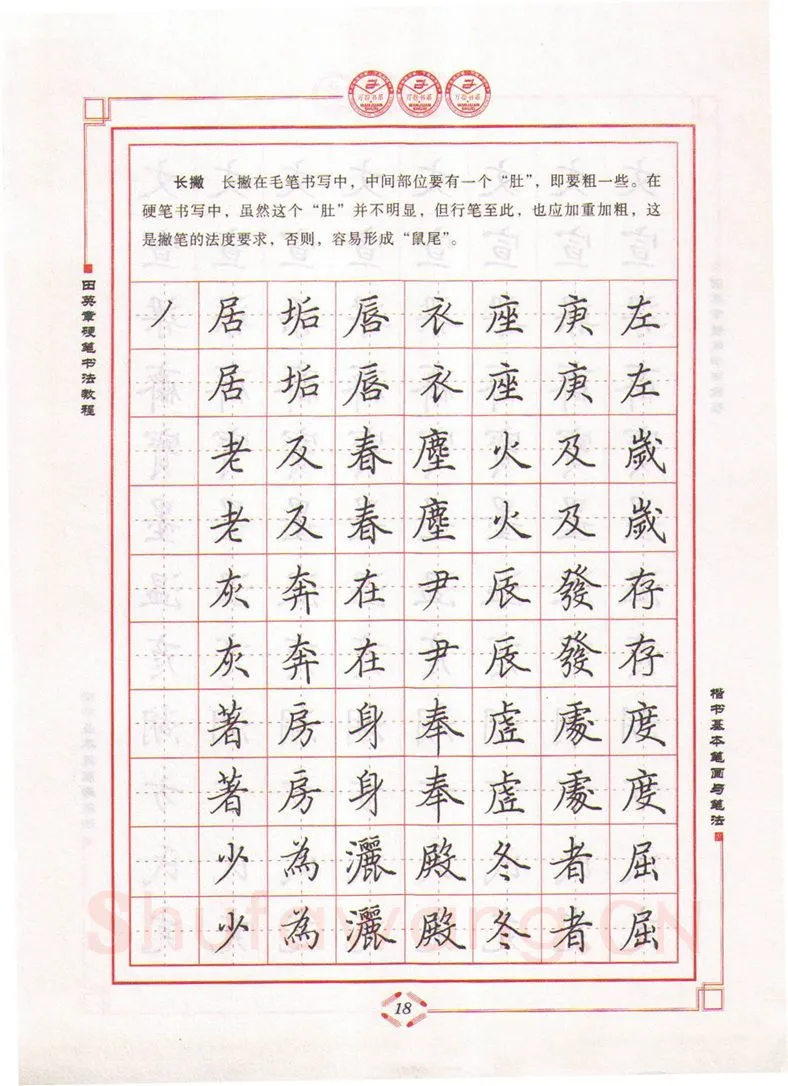 长撇 长撇在毛笔书写中，中间部位要有一个“肚”，即要粗一些。在
硬笔书写中，虽然这个“肚”并不明显，但行笔至此，也应加重加粗，这
是撇笔的法度要求，否则，容易形成“鼠尾”。
田英章硬笔书法教程
丿居垢唇衣座庚左
居垢唇衣座庚左
老反春塵火及歲
老反春塵火及歲
灰奔在尹辰發存
灰奔在尹辰發存
著房身奉虗處度
著房身奉虗處度
少為灑殿冬者屈
少為灑殿冬者屈
楷书基本笔画与笔法
Shufawang.CN
18